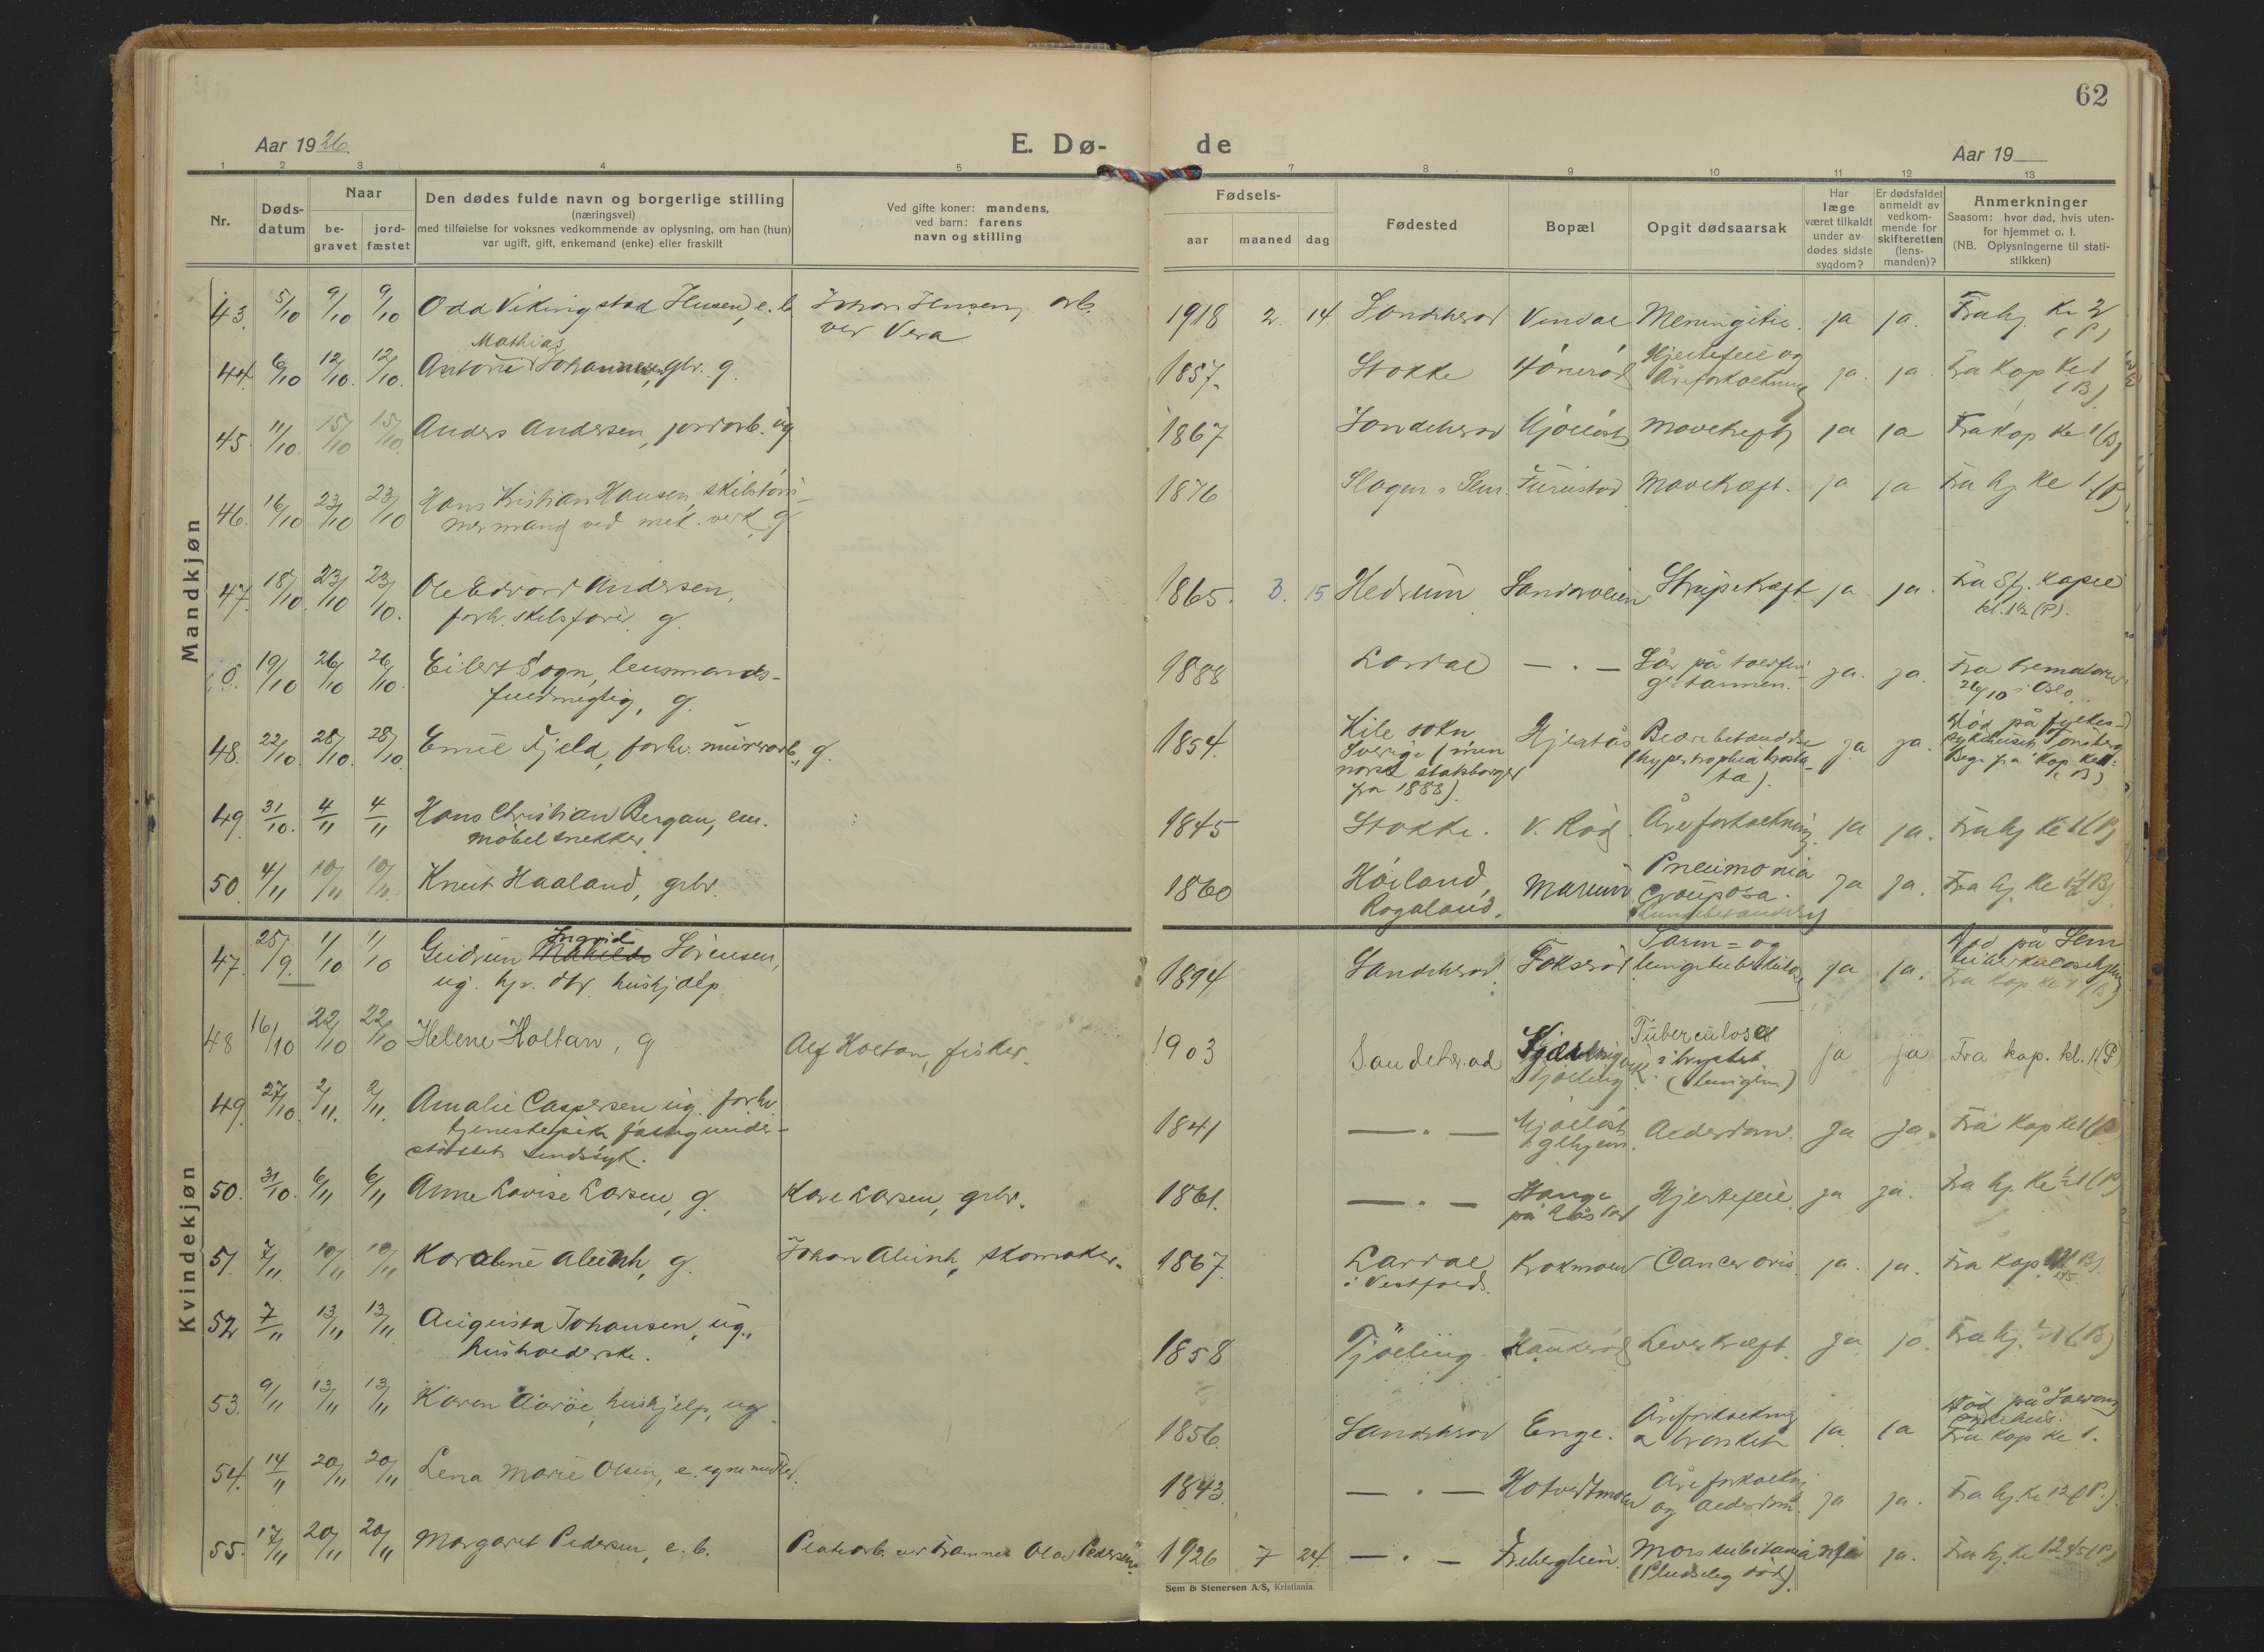 62
Aar 1926
E. Dø-
de
Aar 19
1 2 3 4 5 7 8 9 10 11 12 13
Nr.
Døds-
datum
Naar
be-
gravet
jord-
fæstet
Den dødes fulde navn og borgerlige stilling
(næringsvei)
med tilføielse for voksnes vedkommende av oplysning, om han (hun)
var ugift, gift, enkemand (enke) eller fraskilt
Ved gifte koner: mandens,
ved barn: farens
navn og stilling
Fødsels-
aar maaned dag
Fødested
Bopæl
Opgit dødsaarsak
Har
læge
været tilkaldt
under av-
dødes sidste
sygdom?
Er dødsfaldet
anmeldt av
vedkom-
mende for
skifteretten
(lens-
manden)?
Anmerkninger
Saasom: hvor død, hvis uten-
for hjemmet o. l.
(NB. Oplysningerne til stati-
stikken)
Mandkjøn
43. 5/10 9/10 9/10 Odd Vikingstad Hensen, e. b. Johan Hensen, arb.
ved Vera
1918 2. 14 Sandeherad Vindal Meningitis. ja ja. Fra hj. kl 2
(P)
Mathias
44. 6/10 12/10. 12/10. Anton Johannesen, gbr. g. 1857. Stokke Hjertefeil og
Åreforkalkning ja. ja Fra kap kl 1
(B).
45. 11/10. 15/10 15/10. Anders Andersen, jordarb. ug 1867 Sandeherad Gjølløst Mavekreft ja ja Fra kap kl 1 (B)
46. 16/10 23/10 23/10 Hans Kristian Hansen, skibstøm-
mermand ved mek. verk, g. 1876 Slagen i Sem. Furustad Mavekræft. ja ja Fra hj kl 1 (P)
47. 18/10. 23/10 23/10. Ole Edvard Andersen,
forh. skibsfører. g. 1865. 3. 15 Hedrum Sandarveien Strupekræft ja ja. Fra Sfj. kapel
kl. 1½ (P).
0. 19/10 26/10 26/10. Eilert Sogn, lensmands-
fuldmegtig, g. 1888 Lardal — . — Sår på tolvfin-
gertarmen. ja. ja. Fra krematoriet
26/10 i Oslo.
48. 22/10. 28/10. 28/10. Emil Fjeld, forhv. murerarb., g. 1854. Kile sokn
Sverige (men
norsk statsborger
fra 1888). Hjertås Blærebetændelse
(hypertrophia prosta-
ta). ja ja. Død på fylkes-
sykehuset Tønsberg
Begr fra kap. kl 1
(B)
49. 31/10. 4/11 4/11 Hans Christian Bergan, em.
møbelsnekker 1845 Stokke. V. Rød Åreforkalkning. ja ja. Fra hj kl 1 (B)
50 4/11 10/11 10/11. Knut Haaland, gbr. 1860 Høiland,
Rogaland. Marum Pneumonia
Crouposa.
Lungebetændelse ja ja. Fra hj. kl 1½ (B)
Kvindekjøn
47. 25/9. 1/10 1/10 Gudrun Ingrid Sørensen,
ug. hj. dtr. hushjælp. 1894 Sandeherad. Fokserød Tarm- og
lungetuberkulose ja ja. Død på Sem
tuberkulosehjem
Fra kap. kl 1 (B)
48 16/10 22/10 22/10 Helene Holtan, g Alf Holtan, fisker. 1903 Sandeherad
Tjølling Tuberculose
i brystet.
(lungen) ja ja Fra kap. kl. 1 (P)
49. 27/10. 2/11. 2/11. Amalie Caspersen ug. forhv.
tjenestepike fattigunder-
støttet sindssyk. 1841 — . — Gjølløst
glhjem. Alderdom. ja ja. Fra kap kl 1 (B)
50. 31/10. 6/11 6/11 Anne Lovise Larsen, g. Kare Larsen, gbr. 1861. — . — Hauge
på Råstad Hjertefeil. ja ja. Fra hj. kl ½1 (P)
51. 7/11 10/11 10/11 Karoline Alunh, g. Johan Alunh, skomaker. 1867. Lardal
i Vestfold. Krokmoen Cancer ovis. ja. ja. Fra kap B).
52 7/11 13/11 13/11 Augusta Johansen, ug.,
husholderske. 1858 Tjølling Haukerød Leverkræft. ja ja. Fra hj. (B)
53. 9/11 13/11 13/11 Karen Aarøe, hushjelp, ug 1856. Sandeherad Enge. Åreforkalkning
ja ja Død på
sykehus.
Fra kap kl 1.
54. 14/11 20/11 20/11 Lena Marie Olsen, e. egne midler. 1843. — . — Hotvedtmoen Åreforkalkning
og alderdom. ja ja. Fra hj. kl 12 (P.)
55. 17/11 20/11 20/11 Margaret Pedersen, e. b. Platearb. ved Framnes Olav Pedersen. 1926 7 24. — . — Mors subitania
(Pludselig død). nei ja. Fra hj. kl 12.45 (P)
Sem & Stenersen A/S, Kristiania.